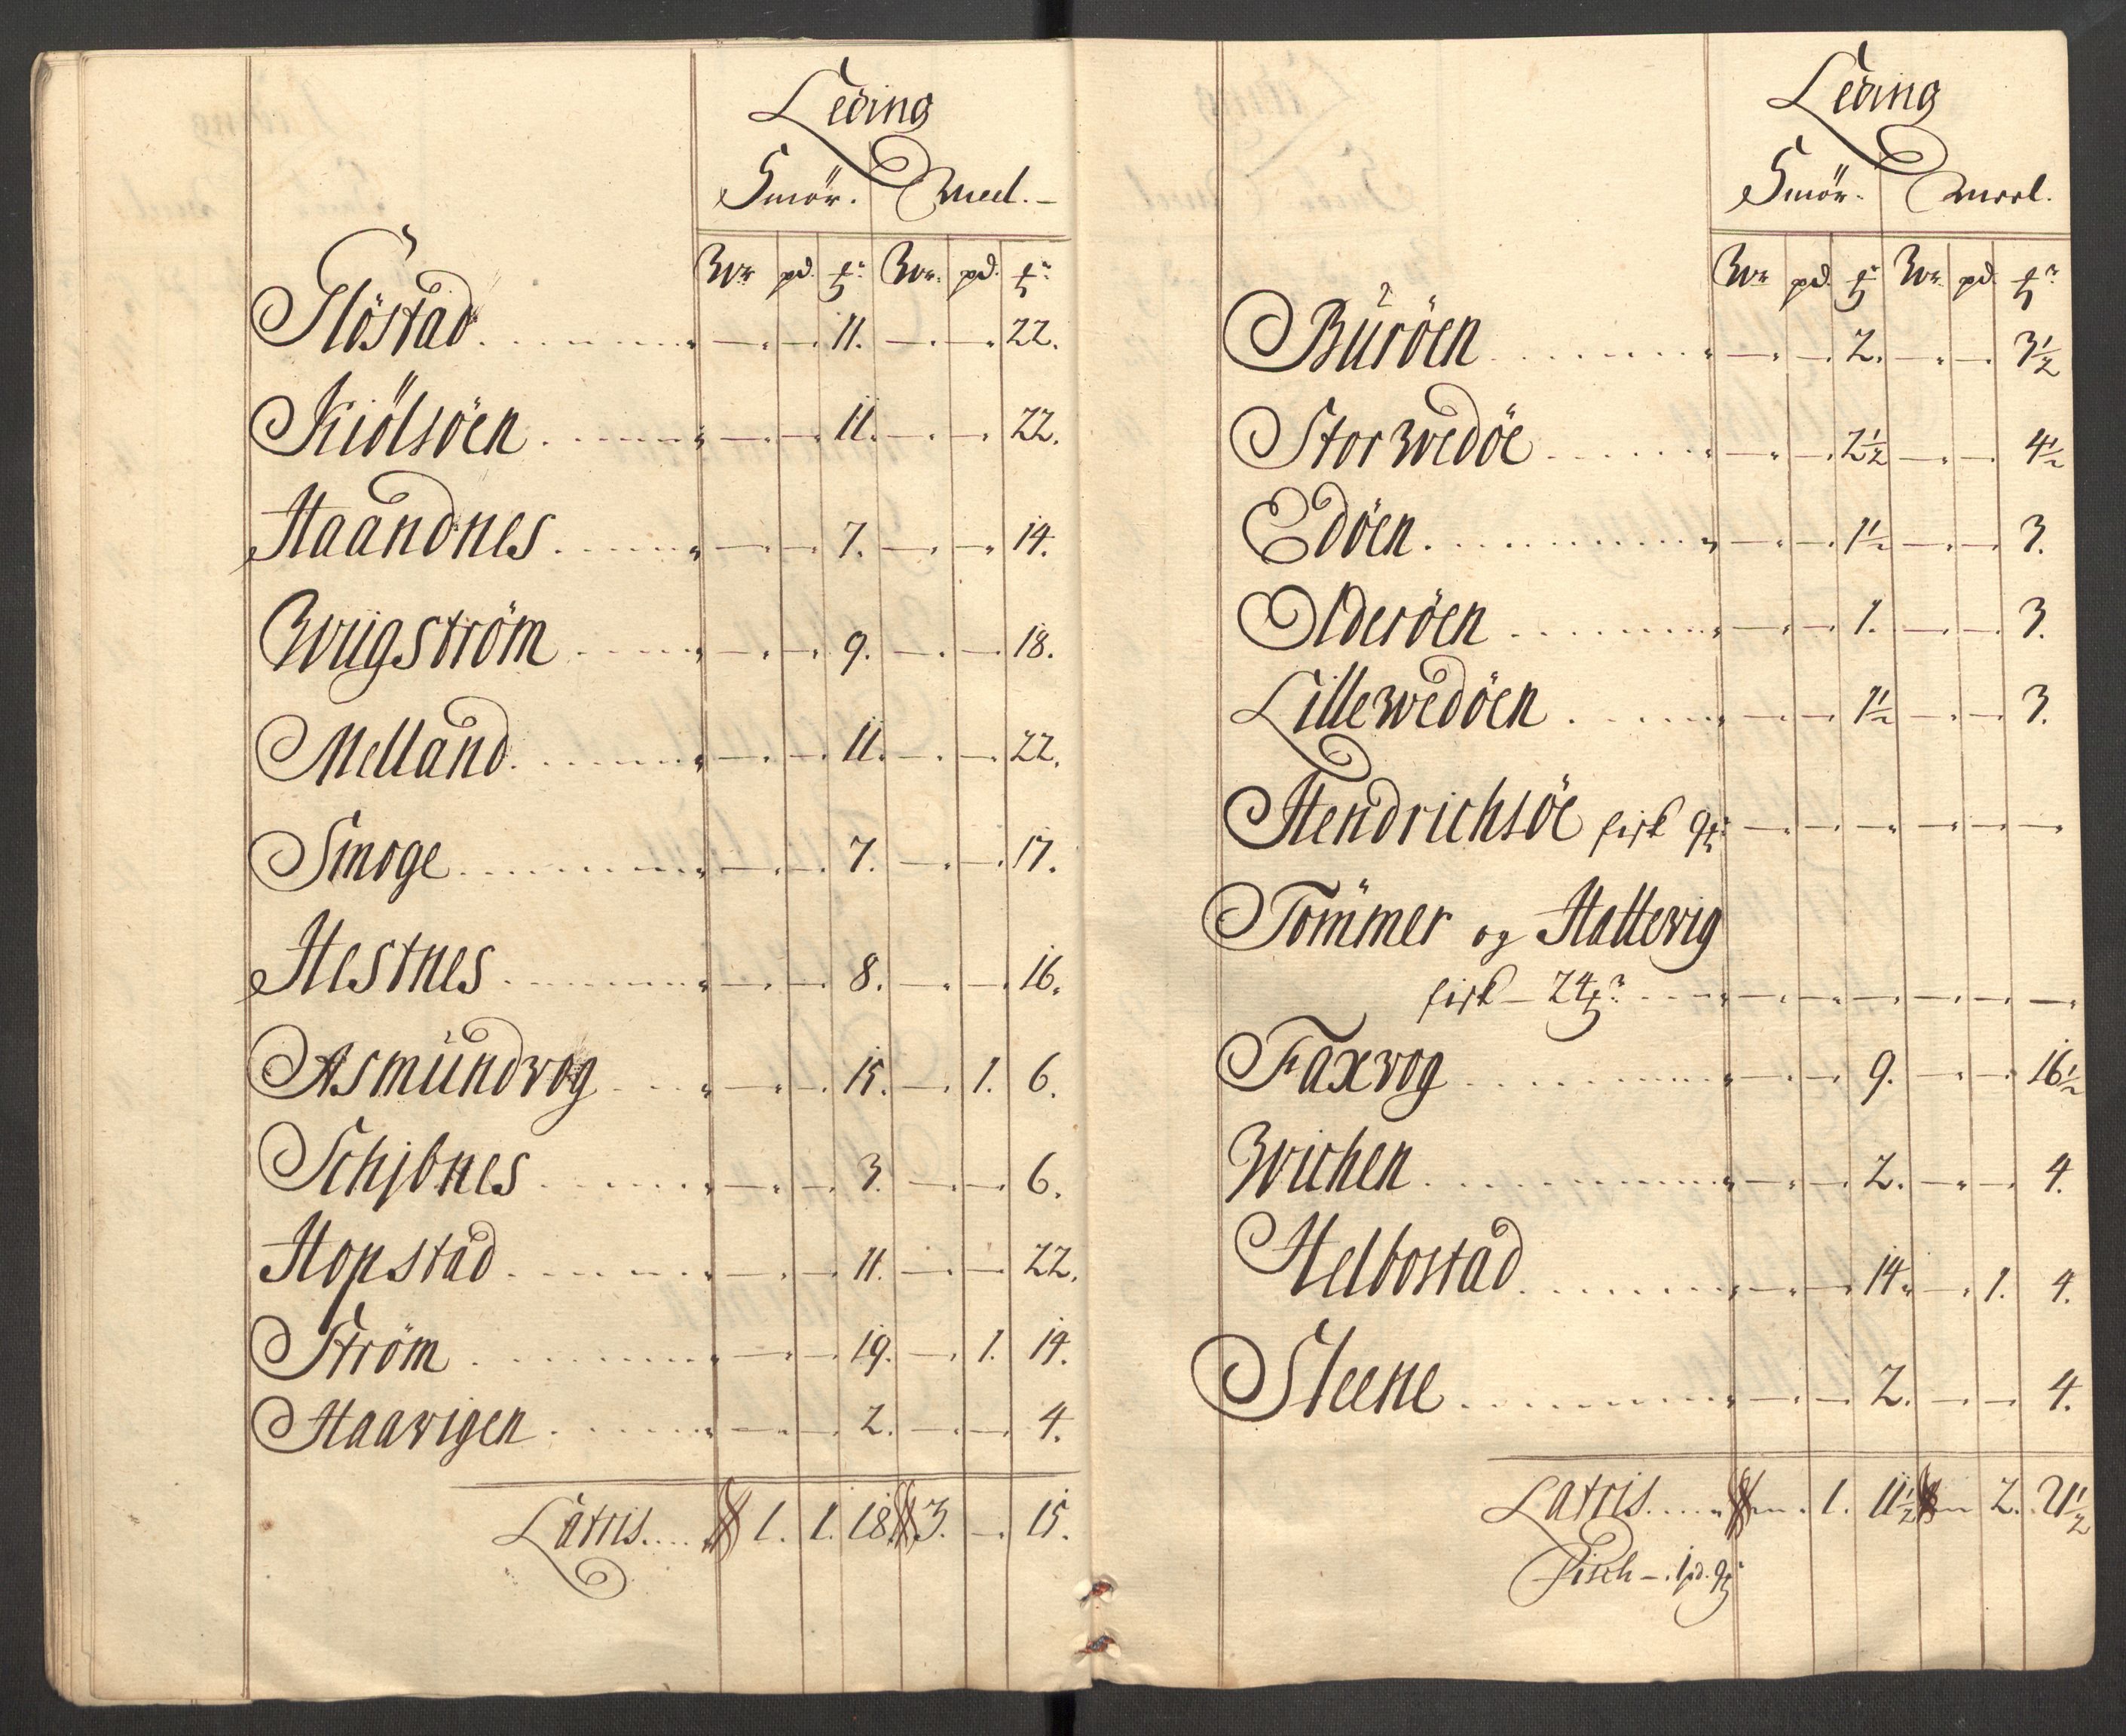 Leding
Smör. Meel.
Wr pd. ℔r Wr. pd. ℔r
Flöstad 11. 22.
Kiölsöen 11. 22.
Haandnes 7. 14.
Wiigström 9. 18.
Melland 11. 22.
Smoge 7. 17.
Hestnes 8. 16.
Asmundvog 15. 1. 6.
Schibnes 3. 6.
Hopstad 11. 22.
Ström 19. 1. 14.
Haavigen 2. 4.
Latris 1. 1. 18. 3. 15.
Leding
Smör. Meel.
Wr pd. ℔r Wr. pd. ℔r
Buröen 2. 3½
Storwedöe 2½ 4½
Edöen 1½ 3.
Olderöen 1. 3.
Lillewedöen 1½ 3.
Hendrichsöe fisk 9℔r
Tömmer og Hattevig
fisk 24℔r
Faxvog 9. 16½
Wichen 2. 4.
Helbostad 14. 1. 4.
Steene 2. 4.
Latris 1. 11½ 2. 21½
Fisch 1 pd. 9℔r